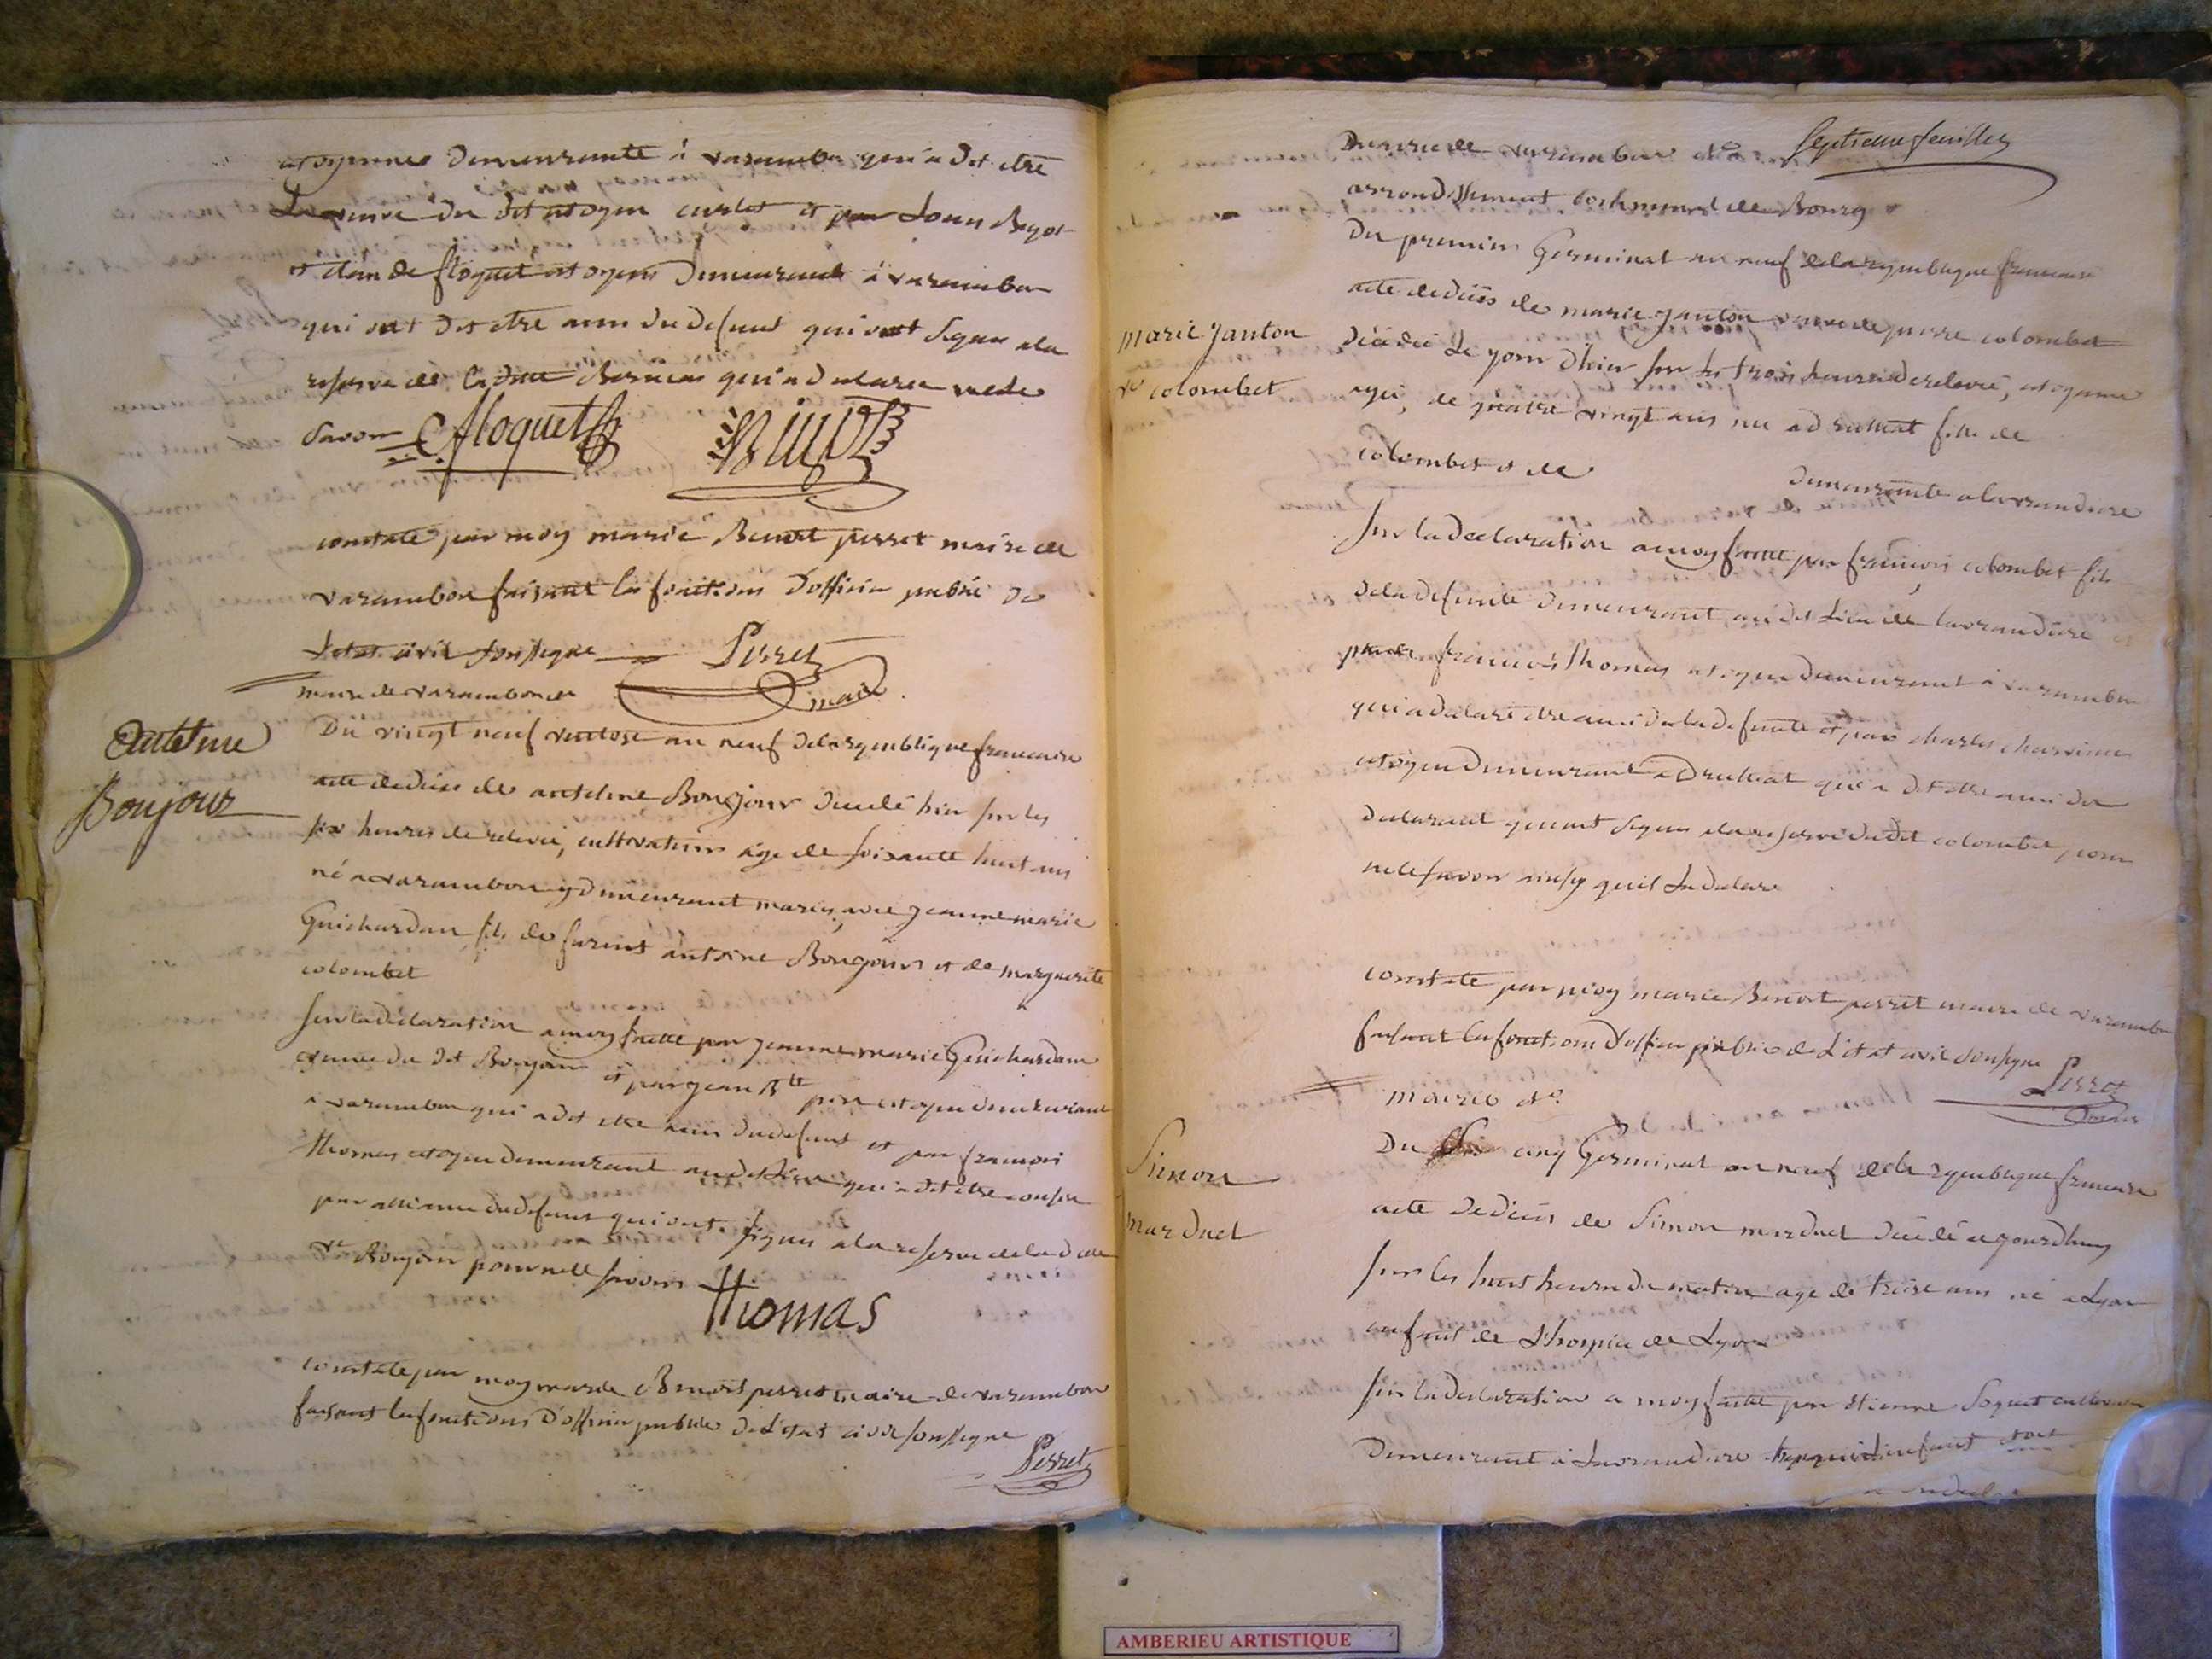 citoyenne demeurante à varambon qui a dit etre
La veuve du dit citoyen curlet et par Louis
et claude floquet citoyens demeurant à varambon
qui ont dit etre amis du defunt qui ont signé a la
reserve de la ditte qui a declarer ne le
savoir floquet
constate par moy marie Benoit perret maire de
varambon faisant les fonctions d'officier public de
Letat civil soussigne Perret
maire
mairie de varambon
Anthelme
Boujour
Du vingt neuf ventose an neuf de la republique francaise
acte de décès de anthelme Bonjour decedé hier sur les
six heures de relevée, cultivateur agé de soixante huit ans
né a varambon y demeurant marié avec jeanne marie
Guichardan, fils de furent antoine Bonjour et de marguerite
colombet
sur la déclaration a moy faitte par jeanne marie Guichardan
veuve du dit Bonjour et par jean Bte citoyen demeurant
à varambon qui a dit etre ami du defunt et par francois
thomas citoyen demeurant au dit lieu qui a dit etre cousin
par alliance du defunt qui ont signés a la reserve de la ditte
ve Bonjour pour ne le savoir
Thomas
constate par moy marie Benoit perret maire de varambon
faisant les fonctions d'officier public de L'etat civil soussigne
Perret
Mairie de varambon &a septieme feuillet
arrondissement communal de Bourg
Du premier Germinal an neuf de la republique francaise
marie janton
ve colombet
acte de décès de marie janton veuve de pierre colombet
décédée Le jour d'hier sur les trois heures de relevée, citoyenne
agée, de quatre vingt ans née a druillat fille de
colombet et de demeurante a la vrandiere
sur la declaration a moy faitte par francois colombet fils
de la defunte demeurant au dit Lieu de lavrandiere et
par francois thomas citoyen demeurant à varambon
qui a declaré etre ami de la defunte et par charles
citoyen demeurant a druillat qui a dit etre ami du
declarant qui ont signés a la reserve du dit colombet pour
ne le savoir ainsy qu'il La declare
constate par moy marie Benoit perret maire de varambon
faisant les fonctions d'officier public de L'etat civil soussigne
Perret
maire
mairie &a
Simon
marduel
Du cinq Germinal an neuf de la republique francaise
acte de décès de Simon marduel décédé aujourdhuy
sur les huit heures du matin agé de treise ans né a Lyon
enfant de L'hospice de Lyon
sur la declaration a moy faitte par étienne cultivateur
demeurant à Lavrandiere Lenfant etoit